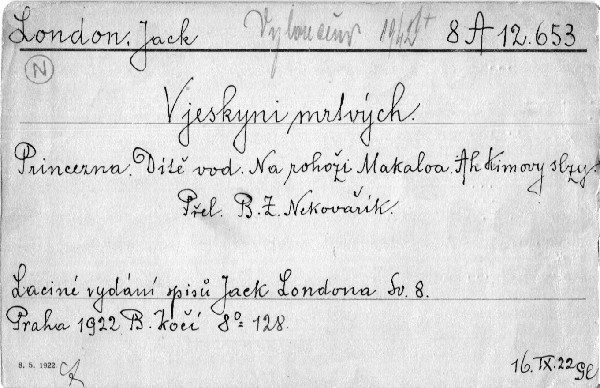 London, Jack Vyloučeno 8 A 12.653
N
V jeskyni mrtvých.
Princezna. Dítě vod. Na rohoži Makaloa. Ah Kimovy slzy.
Přel. B. Z. Nekovařík.
Laciné vydání spisů Jack Londona Sv. 8.
Praha 1922 B. Kočí 8° 128.
8. 5. 1922
16. IX. 22